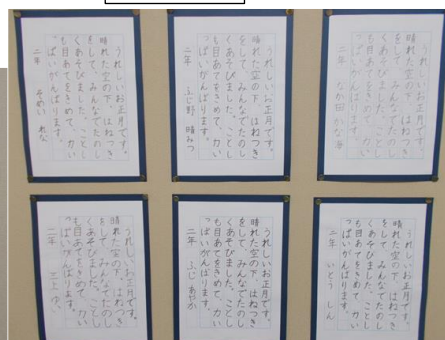 うれしいお正月です。
晴れた空の下、はねつき
をして、みんなでたのし
くあそびました。ことし
も目あてをきめて、力い
っぱいがんばります。
二年 なか田 かな
うれしいお正月です。
晴れた空の下、はねつき
をして、みんなでたのし
くあそびました。ことし
も目あてをきめて、力い
っぱいがんばります。
二年 ふじ野 晴みつ
うれしいお正月です。
晴れた空の下、はねつき
をして、みんなでたのし
くあそびました。ことし
も目あてをきめて、力い
っぱいがんばります。
二年 そめい れな
うれしいお正月です。
晴れた空の下、はねつき
をして、みんなでたのし
くあそびました。ことし
も目あてをきめて、力い
っぱいがんばります。
二年 いとう しん
うれしいお正月です。
晴れた空の下、はねつき
をして、みんなでたのし
くあそびました。ことし
も目あてをきめて、力い
っぱいがんばります。
二年 ふじ あやか
うれしいお正月です。
晴れた空の下、はねつき
をして、みんなでたのし
くあそびました。ことし
も目あてをきめて、力い
っぱいがんばります。
二年 三上